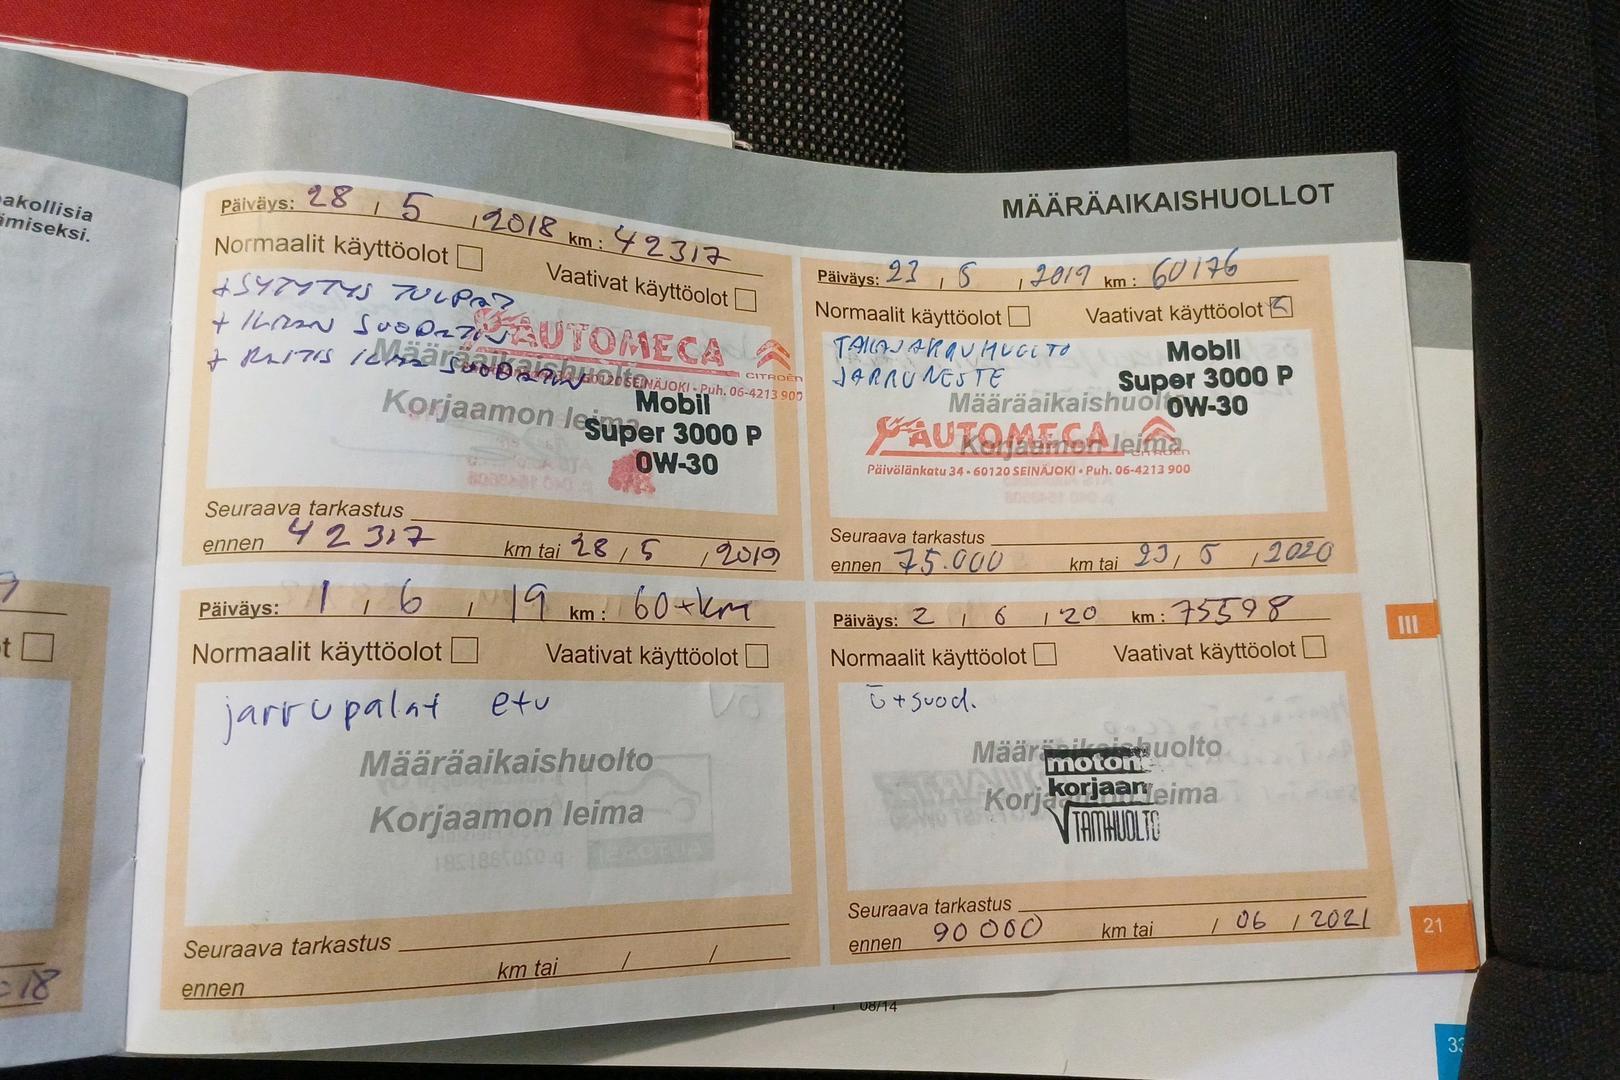 akollisia
ämiseksi.
MÄÄRÄAIKAISHUOLLOT
Päiväys: 28 / 5 / 2018 km : 42317
Normaalit käyttöolot
Vaativat käyttöolot
+ SYTYTYS TULPAT
+ ILMAN SUODATIN
+ RAITIS ILMA SUODATIN
AUTOMECA
CITROËN
60120 SEINÄJOKI • Puh. 06-4213 900
Määräaikaishuolto
Korjaamon leima
Mobil
Super 3000 P
0W-30
Seuraava tarkastus
ennen 42317 km tai 28 / 5 / 2019
Päiväys: 23 / 5 / 2019 km : 60176
Normaalit käyttöolot
Vaativat käyttöolot
TAKAJARRUHUOLTO
JARRUNESTE
Mobil
Super 3000 P
0W-30
Määräaikaishuolto
Korjaamon leima
AUTOMECA
CITROËN
Päivölänkatu 34 • 60120 SEINÄJOKI • Puh. 06-4213 900
Seuraava tarkastus
ennen 75.000 km tai 23 / 5 / 2020
Päiväys: 1 / 6 / 19 km : 60+km
Normaalit käyttöolot
Vaativat käyttöolot
jarrupalat etu
Määräaikaishuolto
Korjaamon leima
Seuraava tarkastus
ennen km tai / /
Päiväys: 2 / 6 / 20 km : 75598
Normaalit käyttöolot
Vaativat käyttöolot
ö+suod.
Määräaikaishuolto
Korjaamon leima
moton
korjaan
TAMHUOLTO
Seuraava tarkastus
ennen 90 000 km tai / 06 / 2021
III
21
08/14
33
18